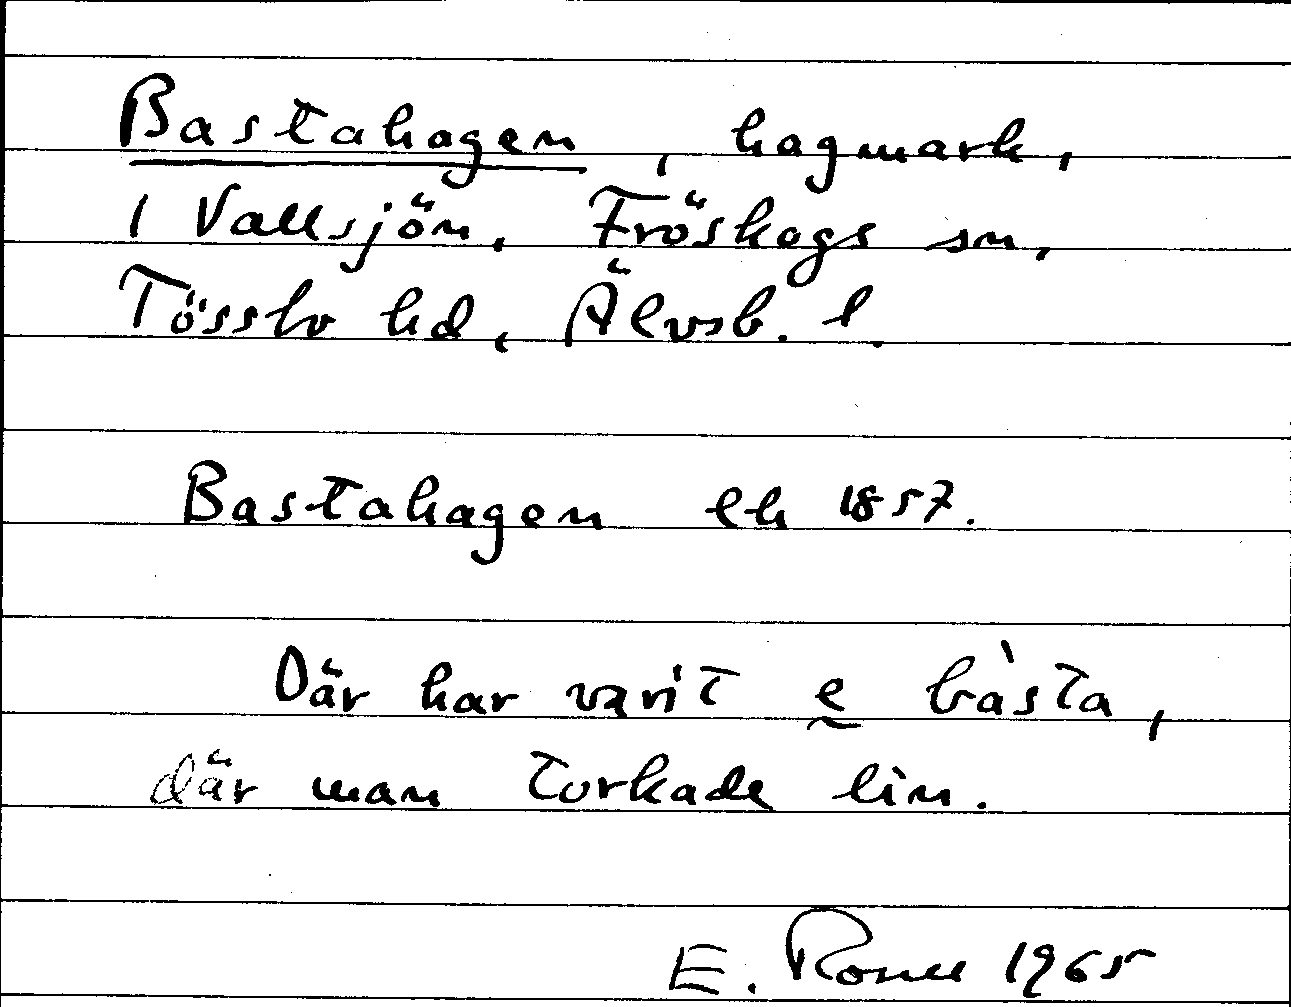 Bastahagen, hagmark,
i Vallsjön, Fröskogs sn,
Tössbo hd, Älvsb. l.
Bastahagen lh 1857.
Där har varit e bàsta,
där man torkade lin.
E. 1965